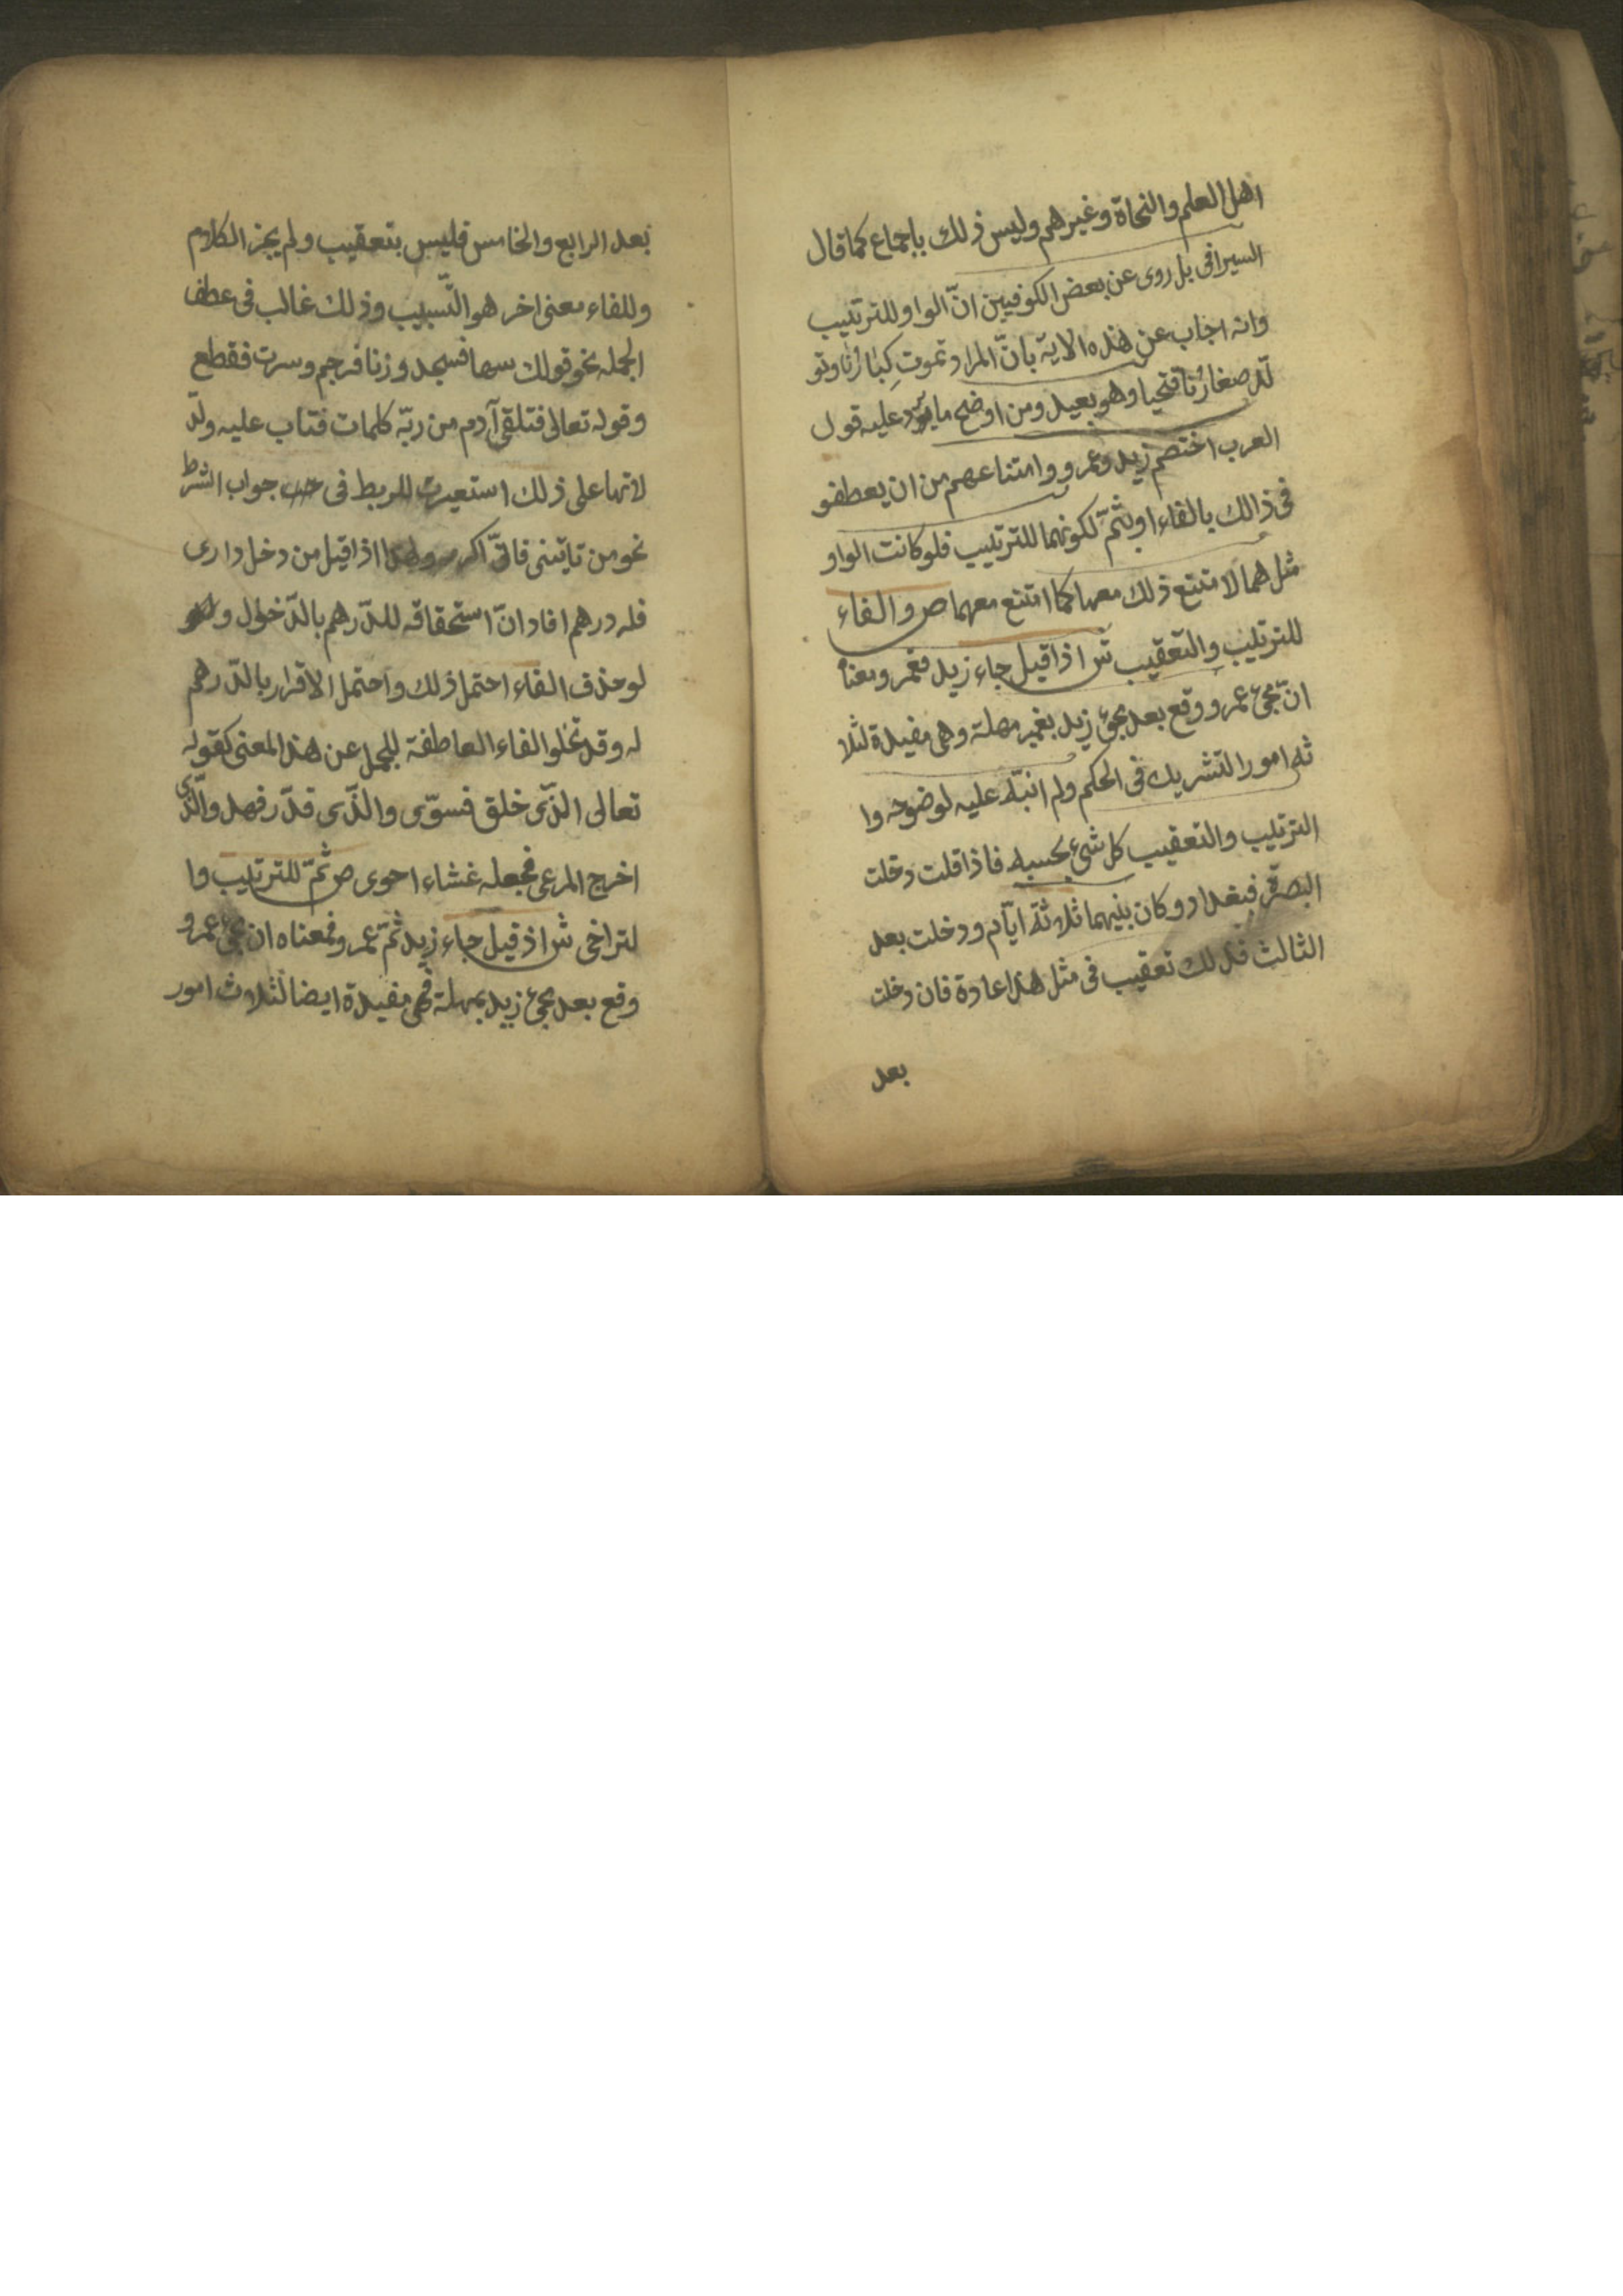 اهل العلم والنحاة وغيرهم وليس ذلك باجماع كما قال
السيرافى بل روى عن بعض الكوفيين انّ الواو للترتيب
وانه اجاب عن هذه الاية بانّ المراد تموت كبارنا وتو
لّد صغارنا فنحيا وهو بعيد ومن اوضح ما يردّ عليه قول
العرب اختصم زيد وعمرو وامتناعهم من ان يعطفو
فى ذالك بالفاء او بثمّ لكونهما للترتيب فلو كانت الواو
مثل هما لامتنع ذلك معها كما امتنع معهما ص والفاء
للترتيب والتعقيب ش اذا قيل جاء زيد فعمرو معناه
انّ مجئ عمرو وقع بعد مجئ زيد بغير مهلة وهى مفيدة لثلا
ثه امور التشريك فى الحكم ولم انبّه عليه لوضوحه وا
الترتيب والتعقيب كل شئ بحسبه فاذا قلت دخلت
البصرة فبغداد وكان بينهما ثلاثة ايّام ودخلت بعد
الثالث فذلك تعقيب فى مثل هذا عادة فان دخلت
بعد
بعد الرابع والخامس فليس بتعقيب ولم يجز الكلام
وللفاء معنى اخر هو التّسبيب وذلك غالب فى عطف
الجمله نحو قولك سها فسجد وزنا فرجم وسرق فقطع
وقوله تعالى فتلقى آدم من ربّه كلمات فتاب عليه ولدّ
لاتها على ذلك استعيرت للربط فى جواب الشرط
نحو من تايتنى فانّى اكرمه ولهذا اذا قيل من دخل دارى
فله درهم افاد انّ استحقاقه للدّرهم بالدّخول و
لو حذف الفاء احتمل ذلك واحتمل الاقرار بالدّرهم
له وقد تخلو الفاء العاطفة للجمل عن هذا المعنى كقوله
تعالى الذّى خلق فسوّى والذّى قدّر فهد والذّى
اخرج المرعى فجعله غشاء احوى ص ثمّ للترتيب وا
لتراخى ش اذ قيل جاء زيد ثمّ عمرو فمعناه ان مجئ عمرو
وقع بعد مجئ زيد بمهلة فهى مفيدة ايضا لثلاث امور